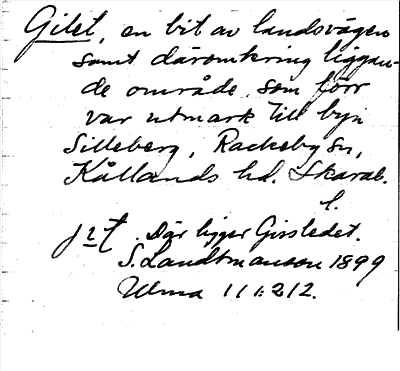 Gilet, en bit av landsvägen
samt däromkring liggan-
de område, som förr
var utmark till byn
Silleberg, Rackeby sn,
Kållands hd. Skarab.
l.
Där ligger Girsledet.
S. Landtmanson 1899
Ulma 111:212.